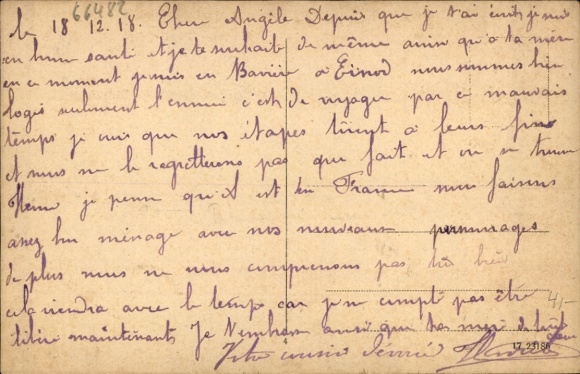 66482
le 18 12. 18. Chere Angèle Depuis que je t'ai écrit je suis
en bonne santé et je te souhaite de même ainsi qu'a ta mère
en ce moment je suis en Bavière a Einod nous sommes bien
logés seulement l'ennui c'est de voyager par ce mauvais
temps je crois que nos étapes tirent a leurs fins
et nous ne le regretterons pas que fait et ou se trouve
je pense qu'il est en France nous faisons
assez bon ménage avec nos nouveaux personnages
de plus nous ne nous comprenons pas très bien
cela viendra avec le temps car je ne compte pas être
libéré maintenant Je t'embrasse ainsi que ta mère de tout
Votre cousin dévoué
41-
17.23186